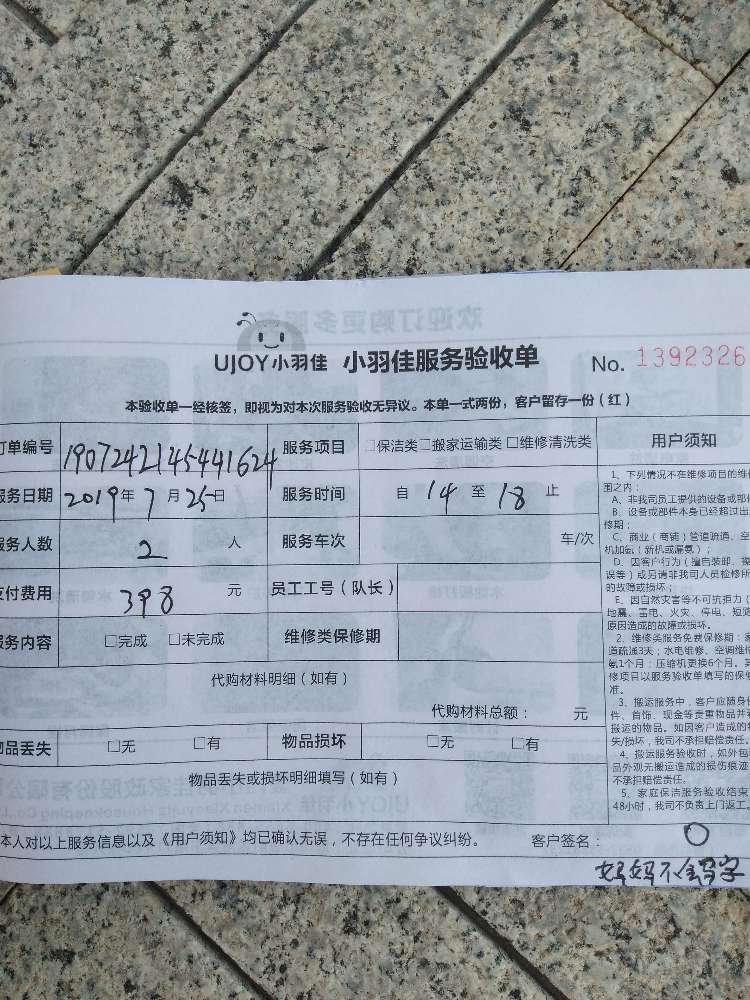 UJOY小羽佳 小羽佳服务验收单 No. 1392326
本验收单一经核签，即视为对本次服务验收无异议。本单一式两份，客户留存一份（红）
订单编号 1907242145441624 服务项目 □保洁类□搬家运输类□维修清洗类 用户须知
服务日期 2019年7月25日 服务时间 自 14 至 18 止
服务人数 2 人 服务车次 车/次
支付费用 398 元 员工工号（队长）
服务内容 □完成 □未完成 维修类保修期
代购材料明细（如有）
代购材料总额： 元
物品丢失 □无 □有 物品损坏 □无 □有
物品丢失或损坏明细填写（如有）
本人对以上服务信息以及《用户须知》均已确认无误，不存在任何争议纠纷。 客户签名： O
妈妈不会写字
1、下列情况不在维修项目的维
围之内：
A、非我司员工提供的设备或部
B、设备或部件本身已经超过出
修期；
C、商业（商铺）管道疏通、空
机加氟（新机或漏氟）；
D、因客户行为（擅自装卸、
误等）或另请非我司人员检修所
的故障或损坏；
E、因自然灾害等不可抗拒力（
地震、雷电、火灾、停电、短
原因造成的故障或损坏。
2、维修类服务免费保修期：
道疏通3天；水电维修、空调维
氟1个月；压缩机更换6个月。
修项目以服务验收单填写的保
准。
3、搬运服务中，客户应随身
件、首饰、现金等贵重物品并
搬运的物品。如因客户造成的
失/损坏，我司不承担赔偿责任。
4、搬运服务验收时，如外包
品外观无搬运造成的损伤痕迹
不承担赔偿责任。
5、家庭保洁服务验收结束
48小时，我司不负责上门返工。